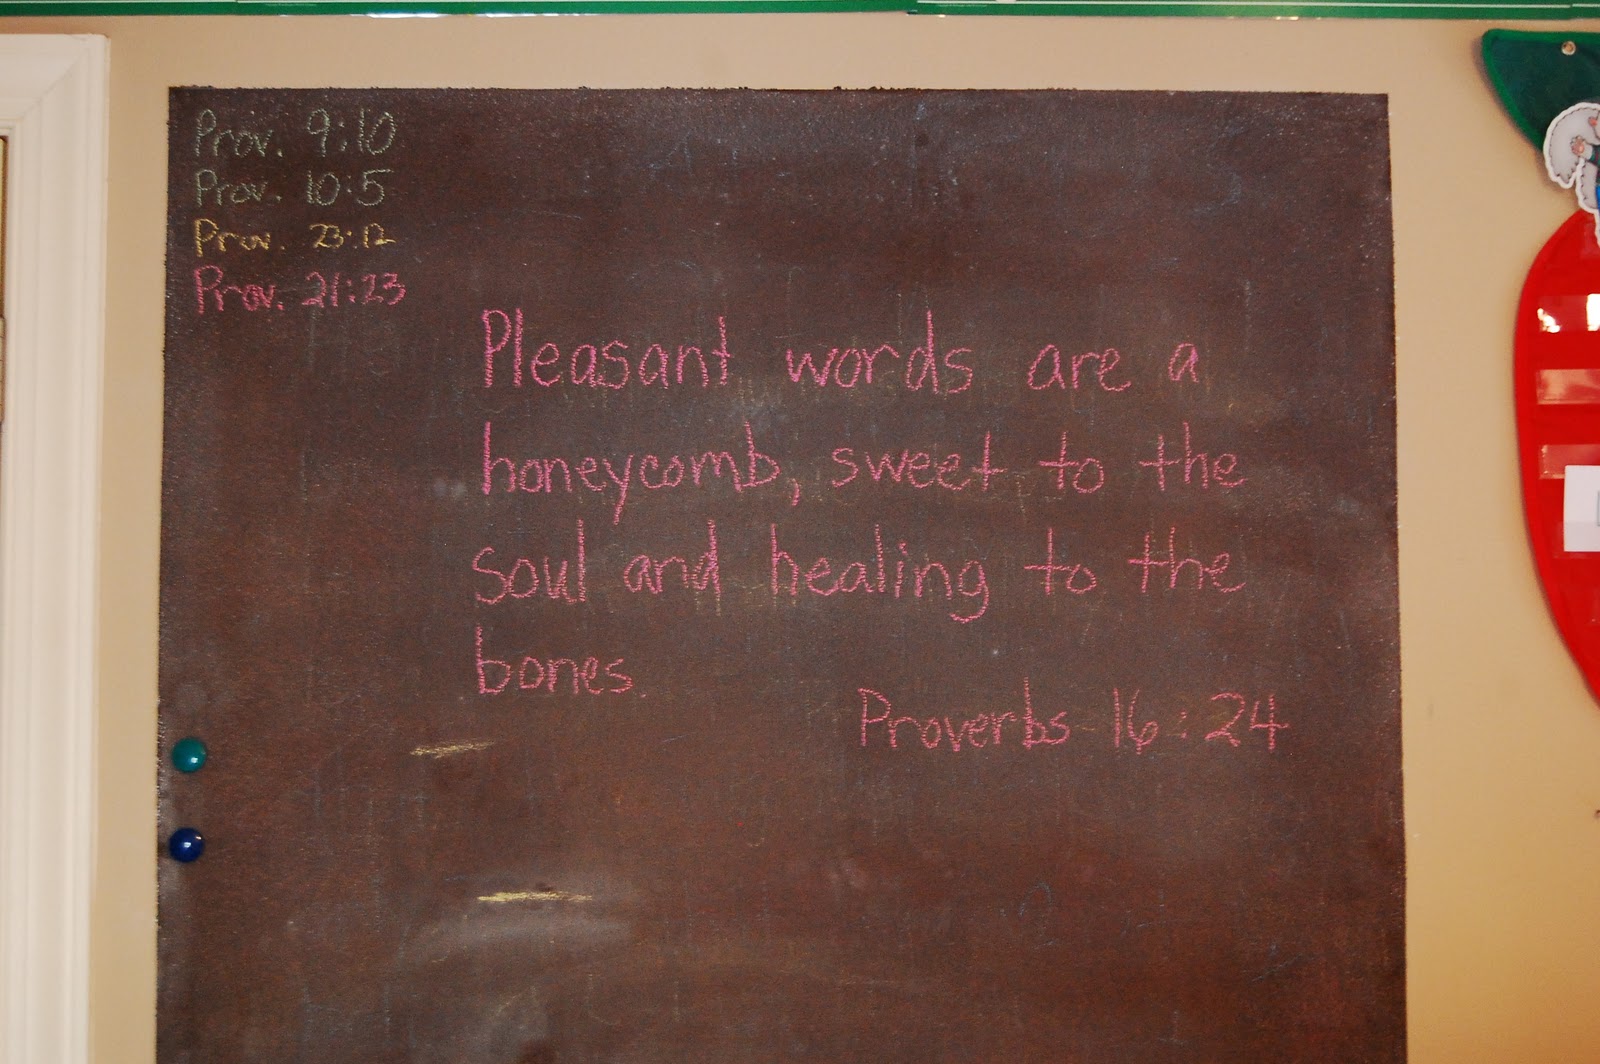 Prov. 9:10
Prov. 10:5
Prov. 23:12
Prov. 21:23
Pleasant words are a
honeycomb, sweet to the
soul and healing to the
bones.
Proverbs 16:24